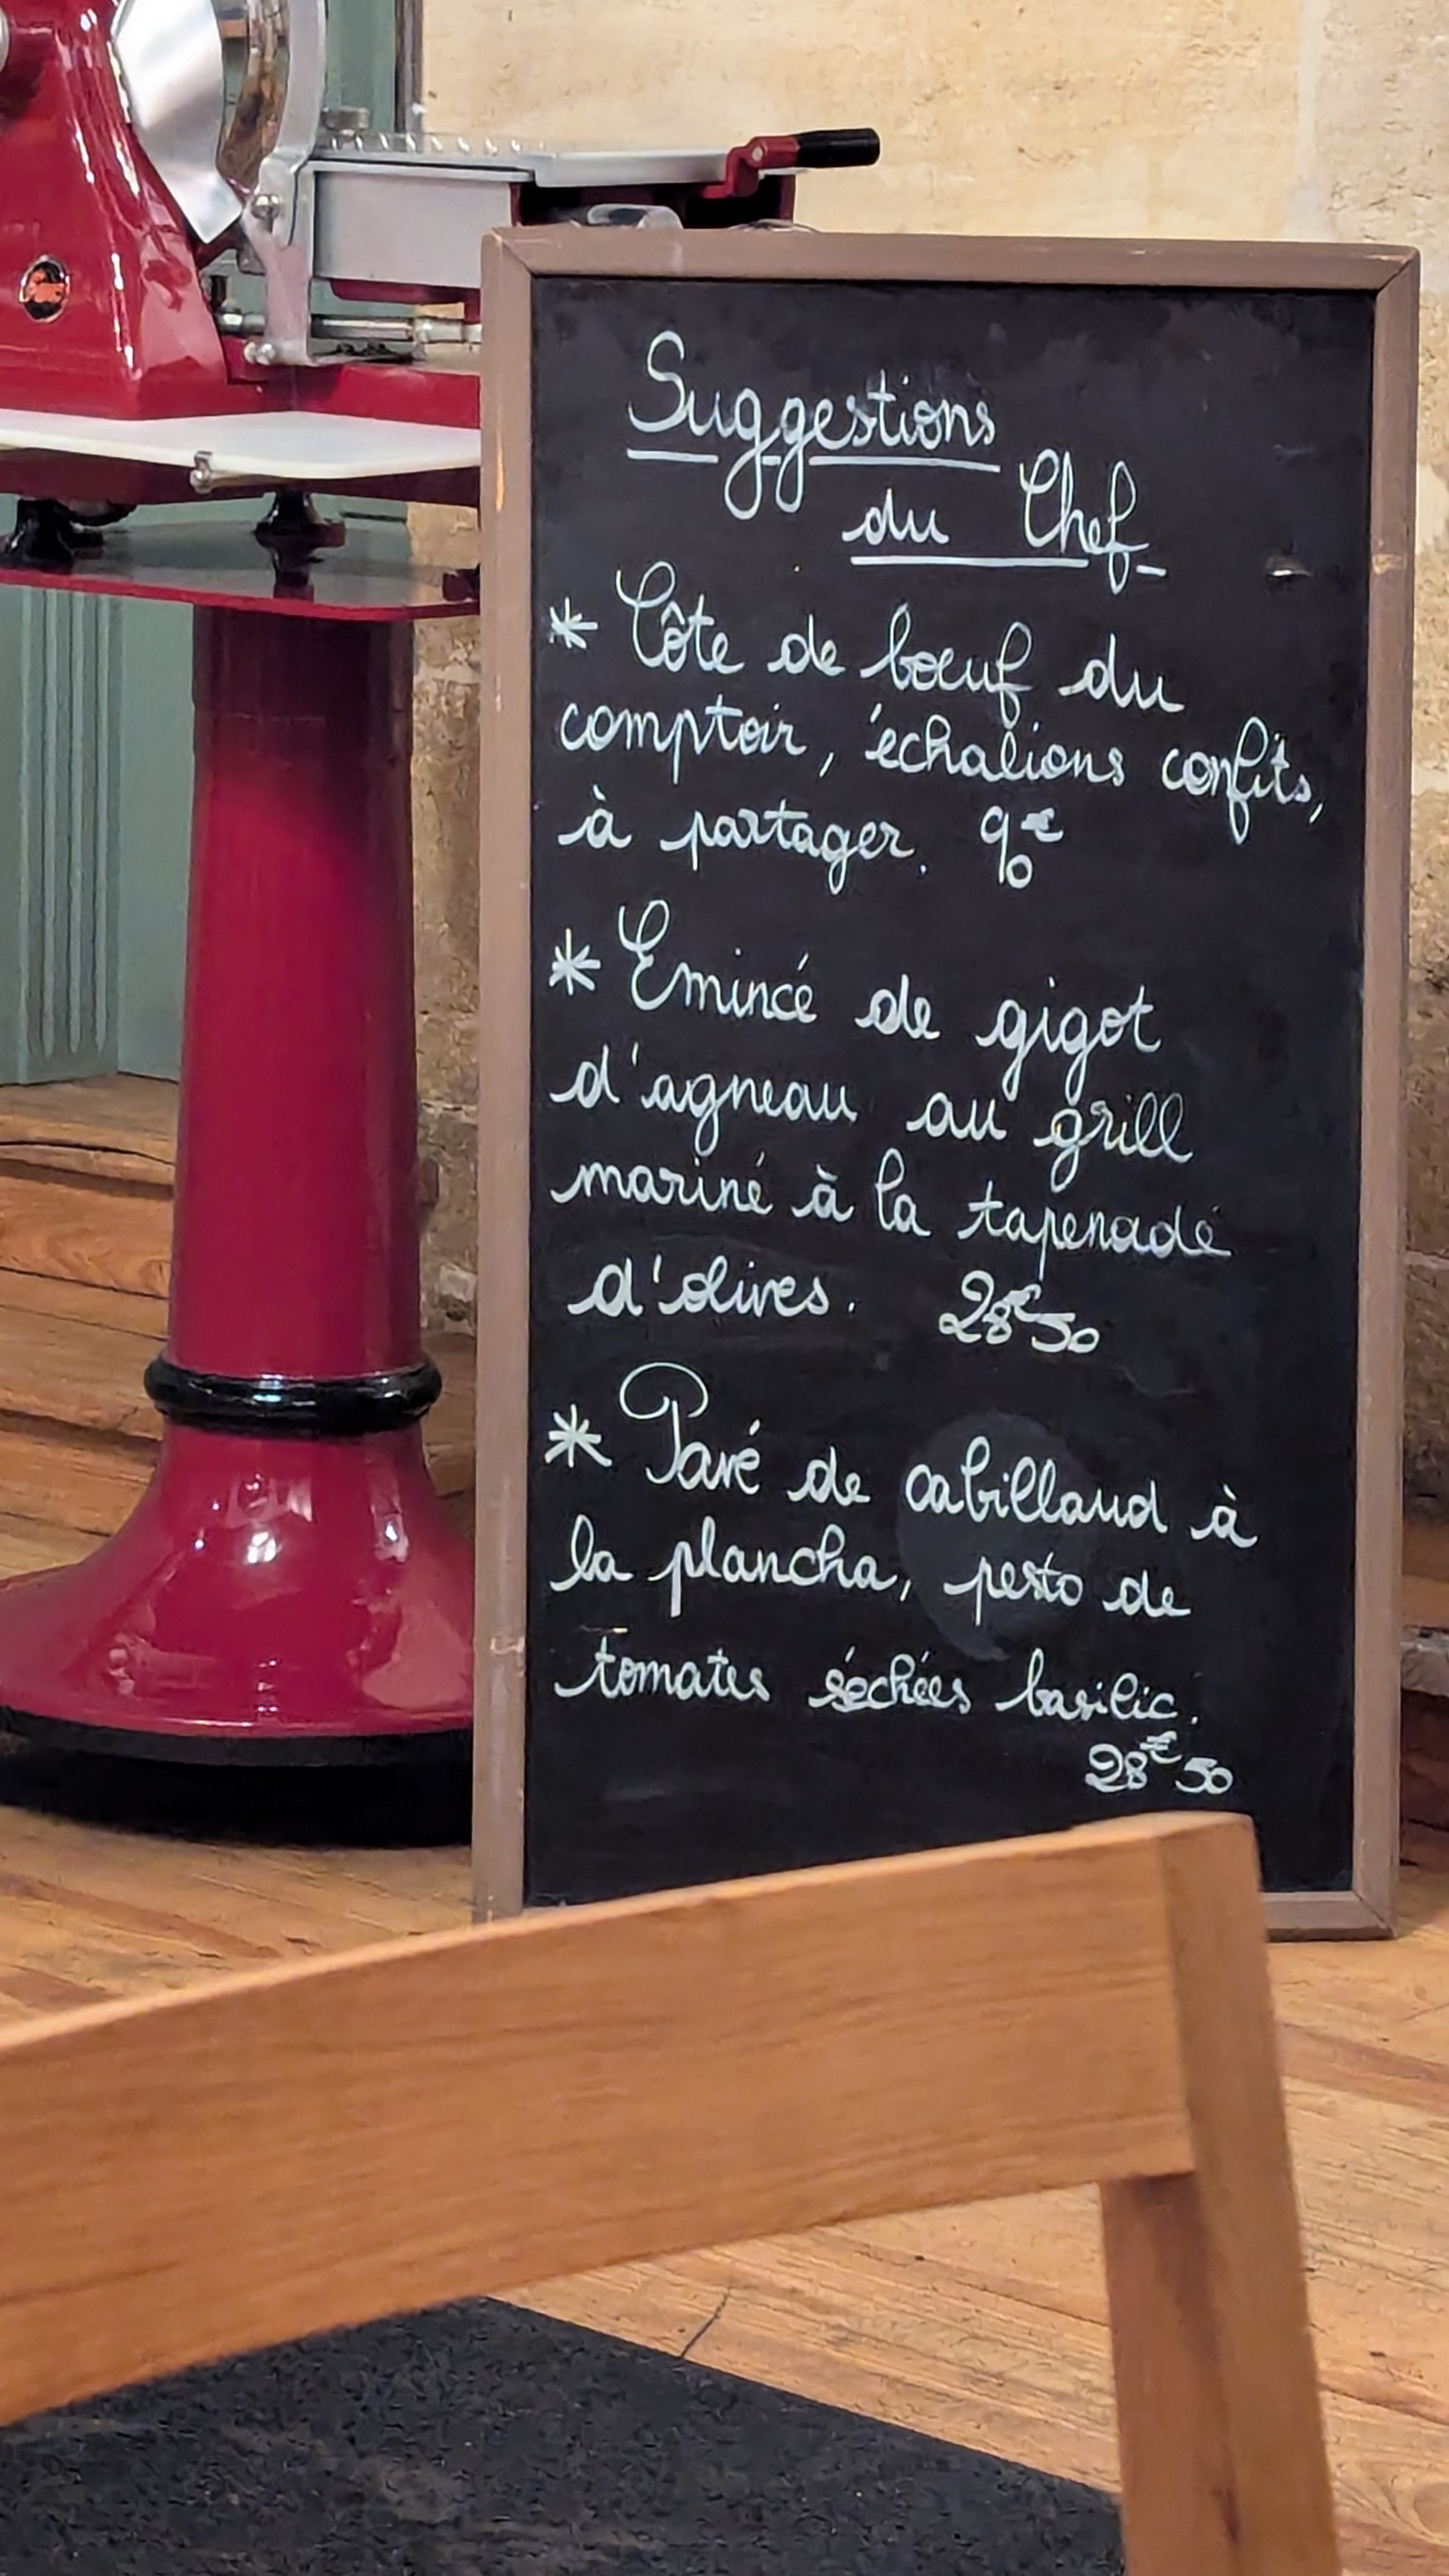 Suggestions
du Chef
* Côte de bœuf du
comptoir, échalions confits,
à partager. 90€
* Emincé de gigot
d'agneau au grill
mariné à la tapenade
d'olives. 28€50
* Pavé de cabillaud à
la plancha, pesto de
tomates séchées basilic.
28€50